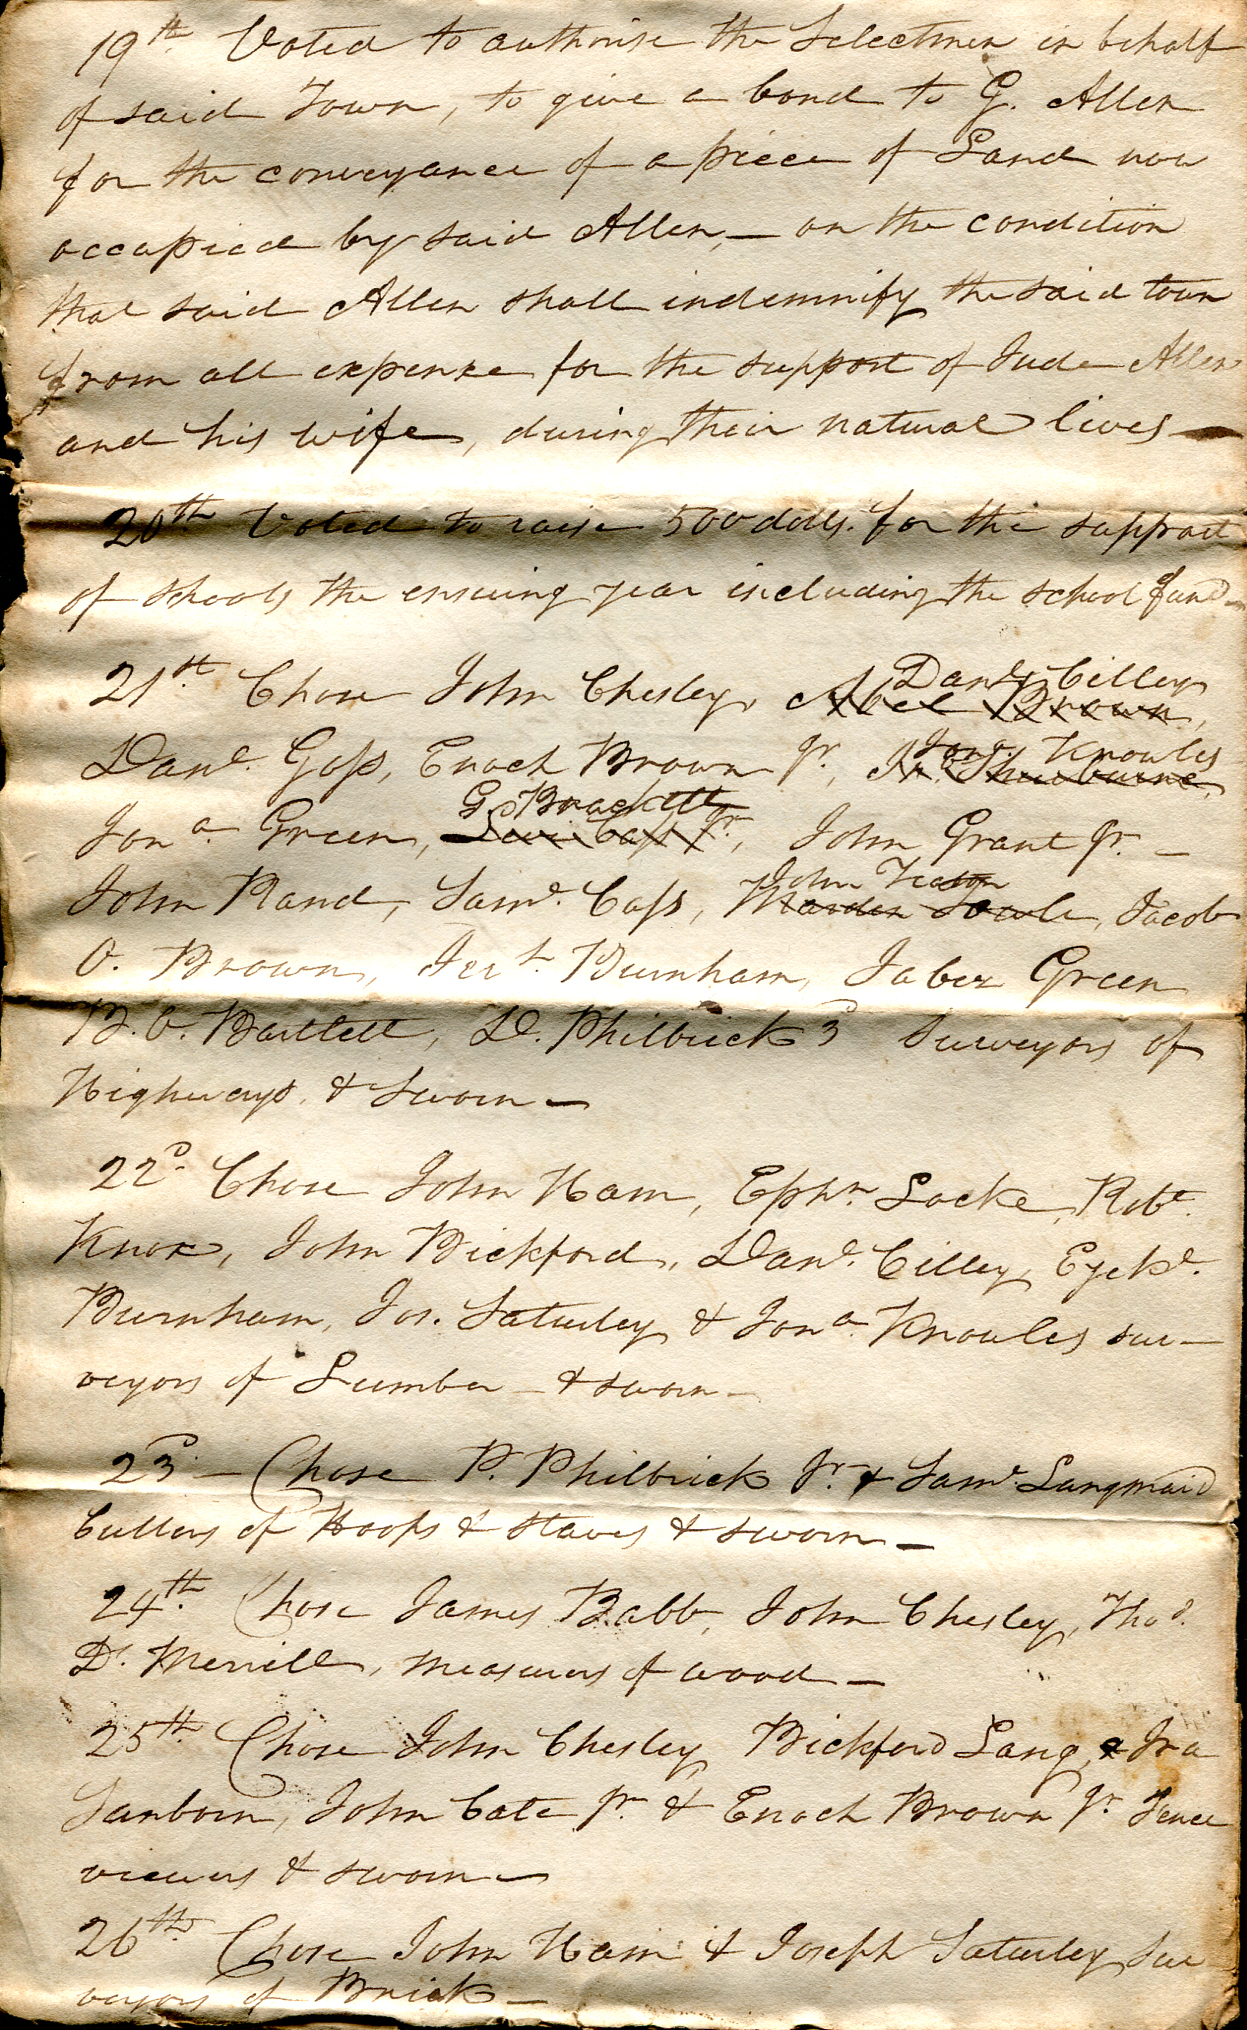 19th. Voted to authorise the Selectmen in behalf
of said Town, to give a bond to G. Allen
for the conveyance of a piece of Land now
occupied by said Allen, — on the condition
that said Allen shall indemnify the said town
from all expense for the support of Jude Allen
and his wife, during their natural lives —
20th Voted to raise 500 dolls. for the support
of schools the ensuing year including the school fund —
21th. Chose John Chesley, Abel Brown,
Danl. Cilley
Danl. Goss, Enoch Brown Jr., Jno. Shewburne,
Jona. Knowles
Jona. Green, Levi Cass Jr., John Grant Jr. —
G. Brackett
John Rand, Saml. Cass, Marden Towle, Jacob
John Yeaton
O. Brown, Jert. Burnham, Jabez Green
B. O. Bartlett, D. Philbrick 3d Surveyors of
Highways. & Sworn —
22d. Chose John Ham, Ephm. Locke, Robt.
Knox, John Bickford, Danl. Cilley, Ezekl.
Burnham, Jos. Saturley & Jona. Knowles sur-
veyors of Lumber — & sworn —
23d. — Chose P. Philbrick Jr. & Saml. Langmaid
Cullers of Hoops & Staves & sworn —
24th. Chose James Babb, John Chesley, Thos.
D. Merrill, measurers of wood —
25th. Chose John Chesley, Bickford Lang, & Ira
Sanborn, John Cate Jr. & Enoch Brown Jr. Fence
viewers & sworn —
26th. Chose John Ham & Joseph Saturley Sur
veyors of Brick —